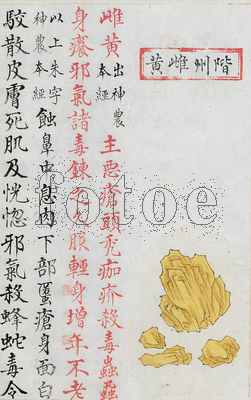 階州雌黃
雌黃出神農本經主惡瘡頭禿痂疥殺毒蟲蝨
身癢邪氣諸毒鍊之久服輕身增年不老
以上朱字神農本經蝕鼻中息肉下部䘌瘡身面白
駮散皮膚死肌及恍惚邪氣殺蜂蛇毒令
fotoe